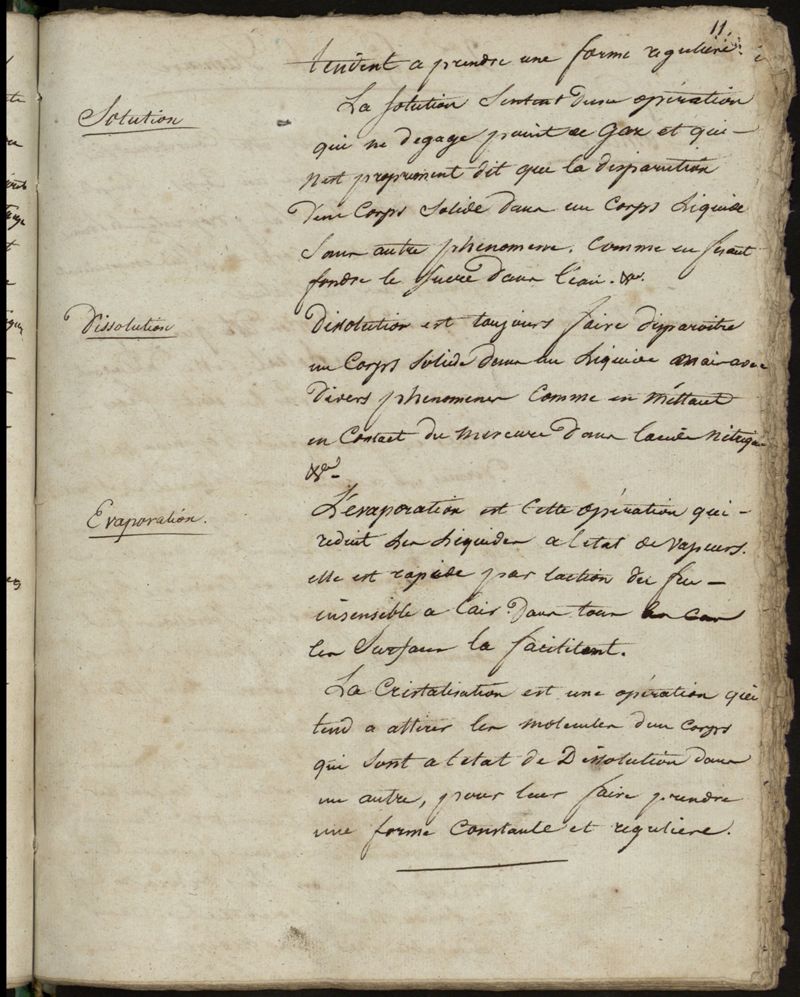 11.
tendent a prendre une forme reguliere.
Solution
La solution s'entent d'une opération
qui ne degage point de Gaz et qui -
n'est proprement dit que la disparution
d'une Corps Solide dans un Corps Liquide
Sans autre phenomene. Comme en fesant
fondre le sucre dans l'eau. &c.
Dissolution
Dissolution est toujours faire disparoitre
un Corps Solide dans un Liquide mais avec
divers phenomenes Comme en méttant
en Contact du mercure dans l'acide nitrique
&c -
Evaporation.
L'évaporation est Cette opération qui -
reduit Les Liquides a l'etat de vapeurs.
elle est rapide par l'action du feu -
insensible a l'air. Dans tous les cas
les Surfaces la facilitent.
La Cristalisation est une opération qui
tend a attirer les molecules d'un Corps
qui sont a l'etat de Dissolution dans
un autre, pour leur faire prendre
une forme Constante et reguliere.